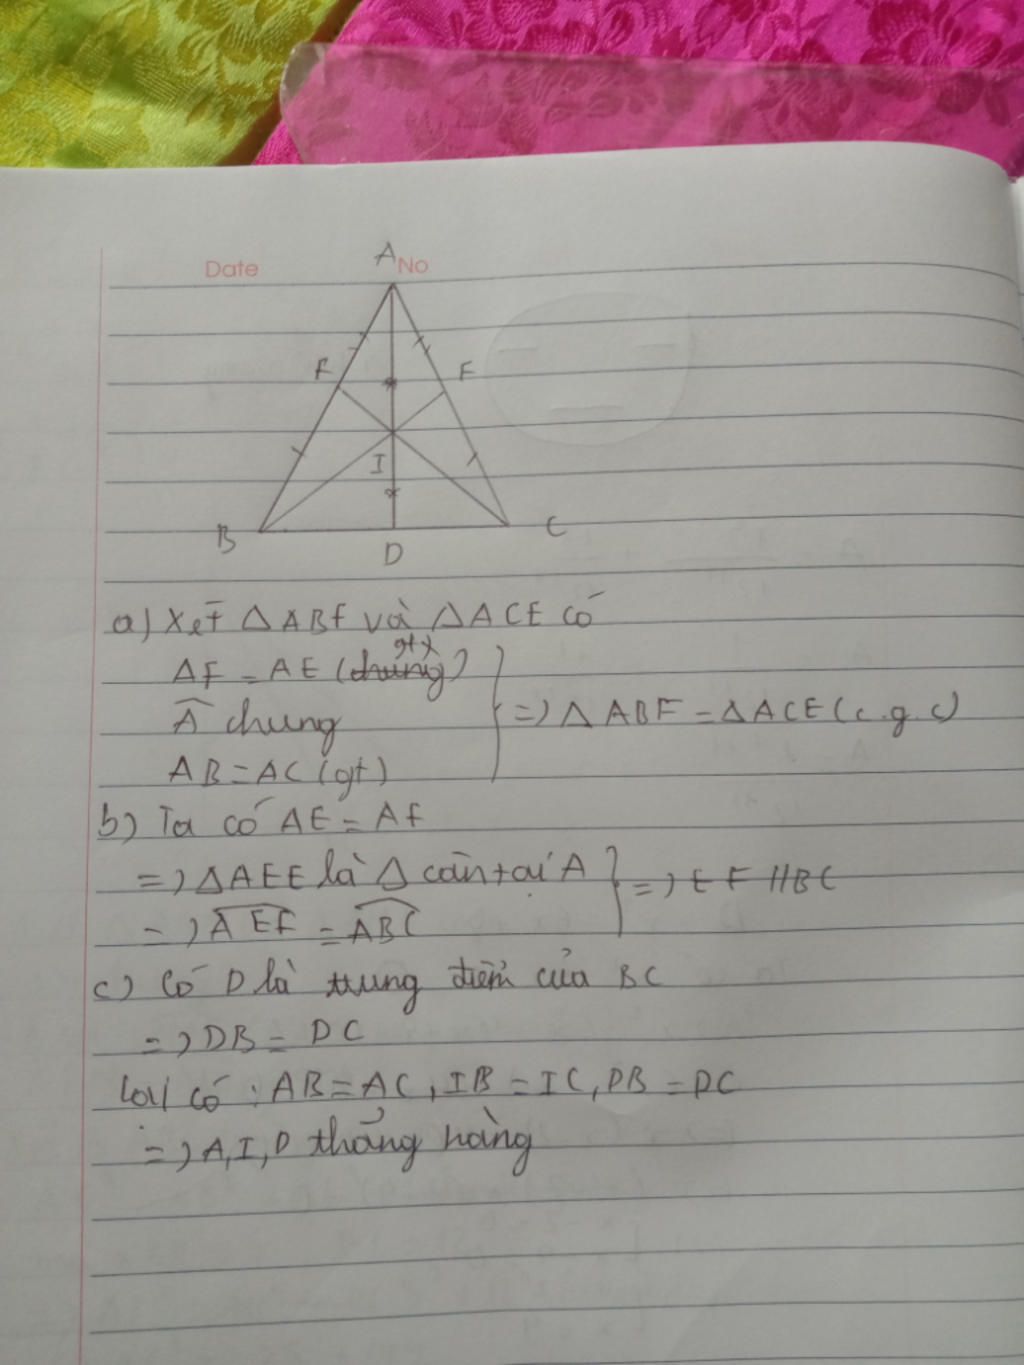 Date
No
A
E
F
I
B
D
C
a) Xét Δ ABF và Δ ACE có
AF = AE (gt)
Â chung
AB = AC (gt)
=> Δ ABF = Δ ACE (c.g.c)
b) Ta có AE = AF
=> Δ AEF là Δ cân tại A
=> AEF = ABC
=> EF // BC
c) Có D là trung điểm của BC
=> DB = DC
Lại có : AB = AC, IB = IC, DB = DC
=> A, I, D thẳng hàng